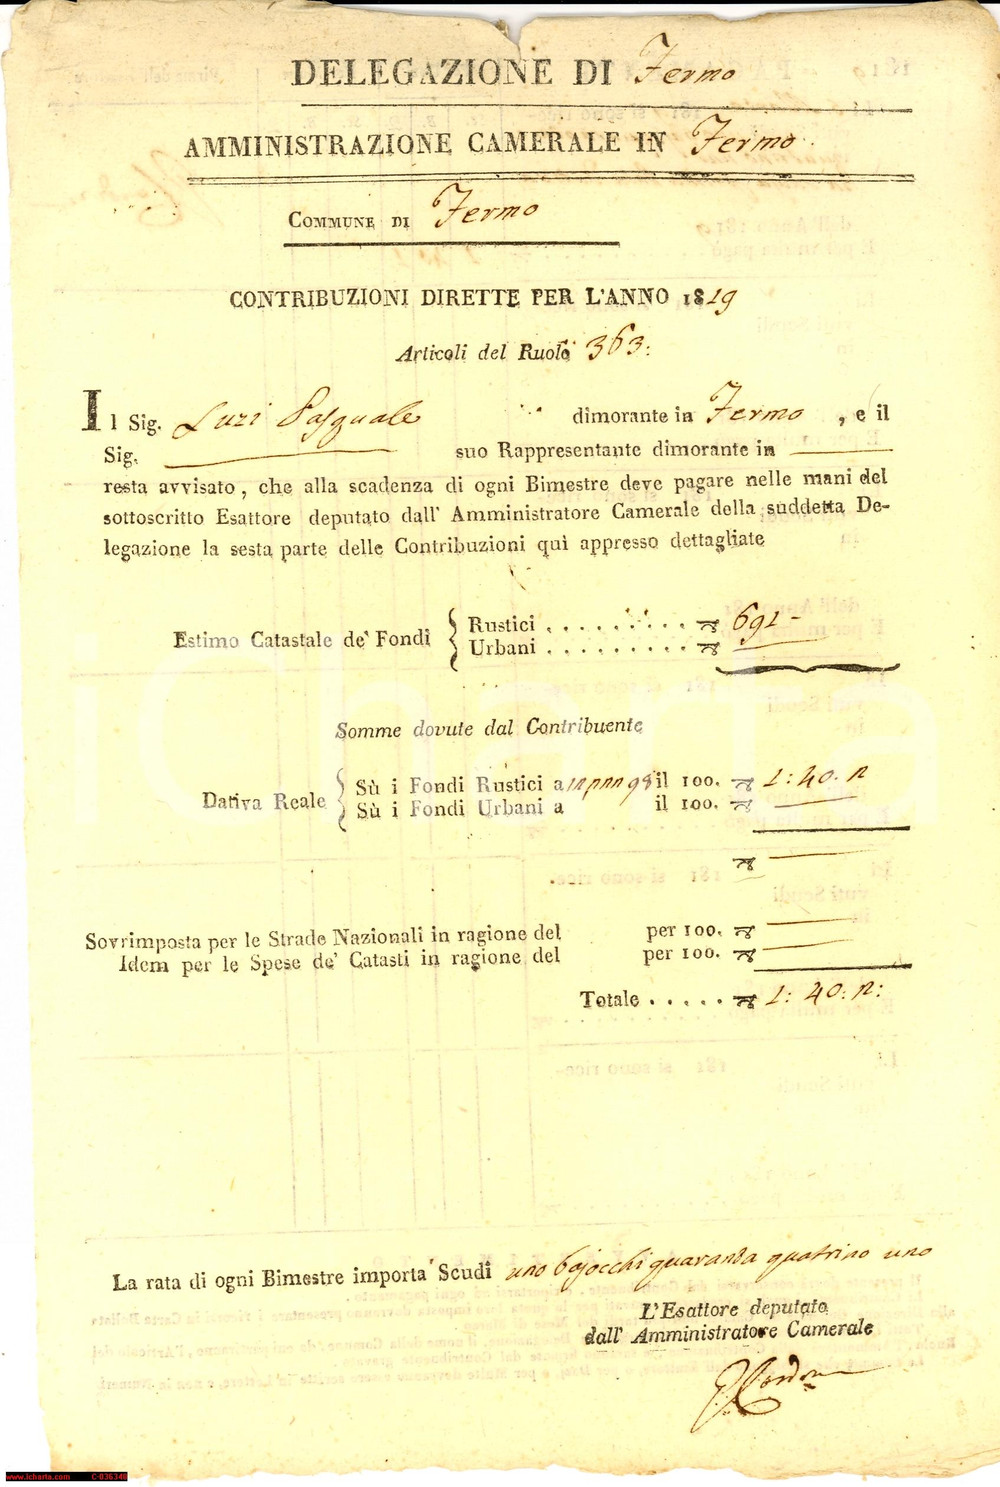 DELEGAZIONE DI Fermo
AMMINISTRAZIONE CAMERALE IN Fermo
COMMUNE DI Fermo
CONTRIBUZIONI DIRETTE PER L'ANNO 1819
Articoli del Ruolo 363:
Il Sig. Luzi Pasquale dimorante in Fermo, e il
Sig. suo Rappresentante dimorante in
resta avvisato, che alla scadenza di ogni Bimestre deve pagare nelle mani del
sottoscritto Esattore deputato dall' Amministratore Camerale della suddetta De-
legazione la sesta parte delle Contribuzioni quì appresso dettagliate
Estimo Catastale de' Fondi { Rustici . . . . . . . . . 691 -
Urbani . . . . . . . . .
Somme dovute dal Contribuente
Dativa Reale { Sù i Fondi Rustici a il 100. 1:40.
Sù i Fondi Urbani a il 100.
Sovrimposta per le Strade Nazionali in ragione del per 100.
Idem per le Spese de' Catasti in ragione del per 100.
Totale . . . . . 1:40.
La rata di ogni Bimestre importa Scudi uno bajocchi quaranta quatrino uno
L'Esattore deputato
dall' Amministratore Camerale
iCharta
www.icharta.com C-036348